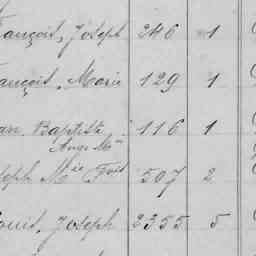 rançois, Joseph 246 1
rançois, Marie 129 1
an Baptiste 116 1
Ange Mie
seph Mie Frois 507 2
ouis, Joseph 2355 5